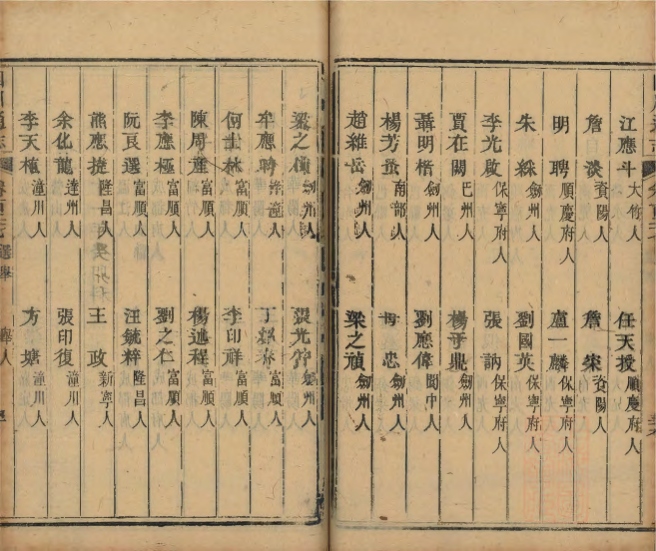 江應斗 大竹人 任天授 順慶府人
詹自淡 資陽人 詹棠 資陽人
明聘 順慶府人 盧一麟 保寧府人
朱綵 劍州人 劉國英 保寧府人
李光啟 保寧府人 張訥 保寧府人
賈在閑 巴州人 楊 鼎 劍州人
聶明楷 劍州人 劉應偉 閬中人
楊芳 南部人 母忠 劍州人
趙維岳 劍州人 梁之楨 劍州人
梁之 劍州人 張光 劍州人
牟應時 人 丁 富順人
何士林 富順人 李印祥 富順人
陳周產 富順人 楊述程 富順人
李應極 富順人 劉之仁 富順人
阮良選 富順人 汪毓粹 隆昌人
熊應捷 隆昌人 王政 新寧人
余化龍 達州人 張印復 潼川人
李天植 潼川人 方塘 潼川人
選舉 舉人